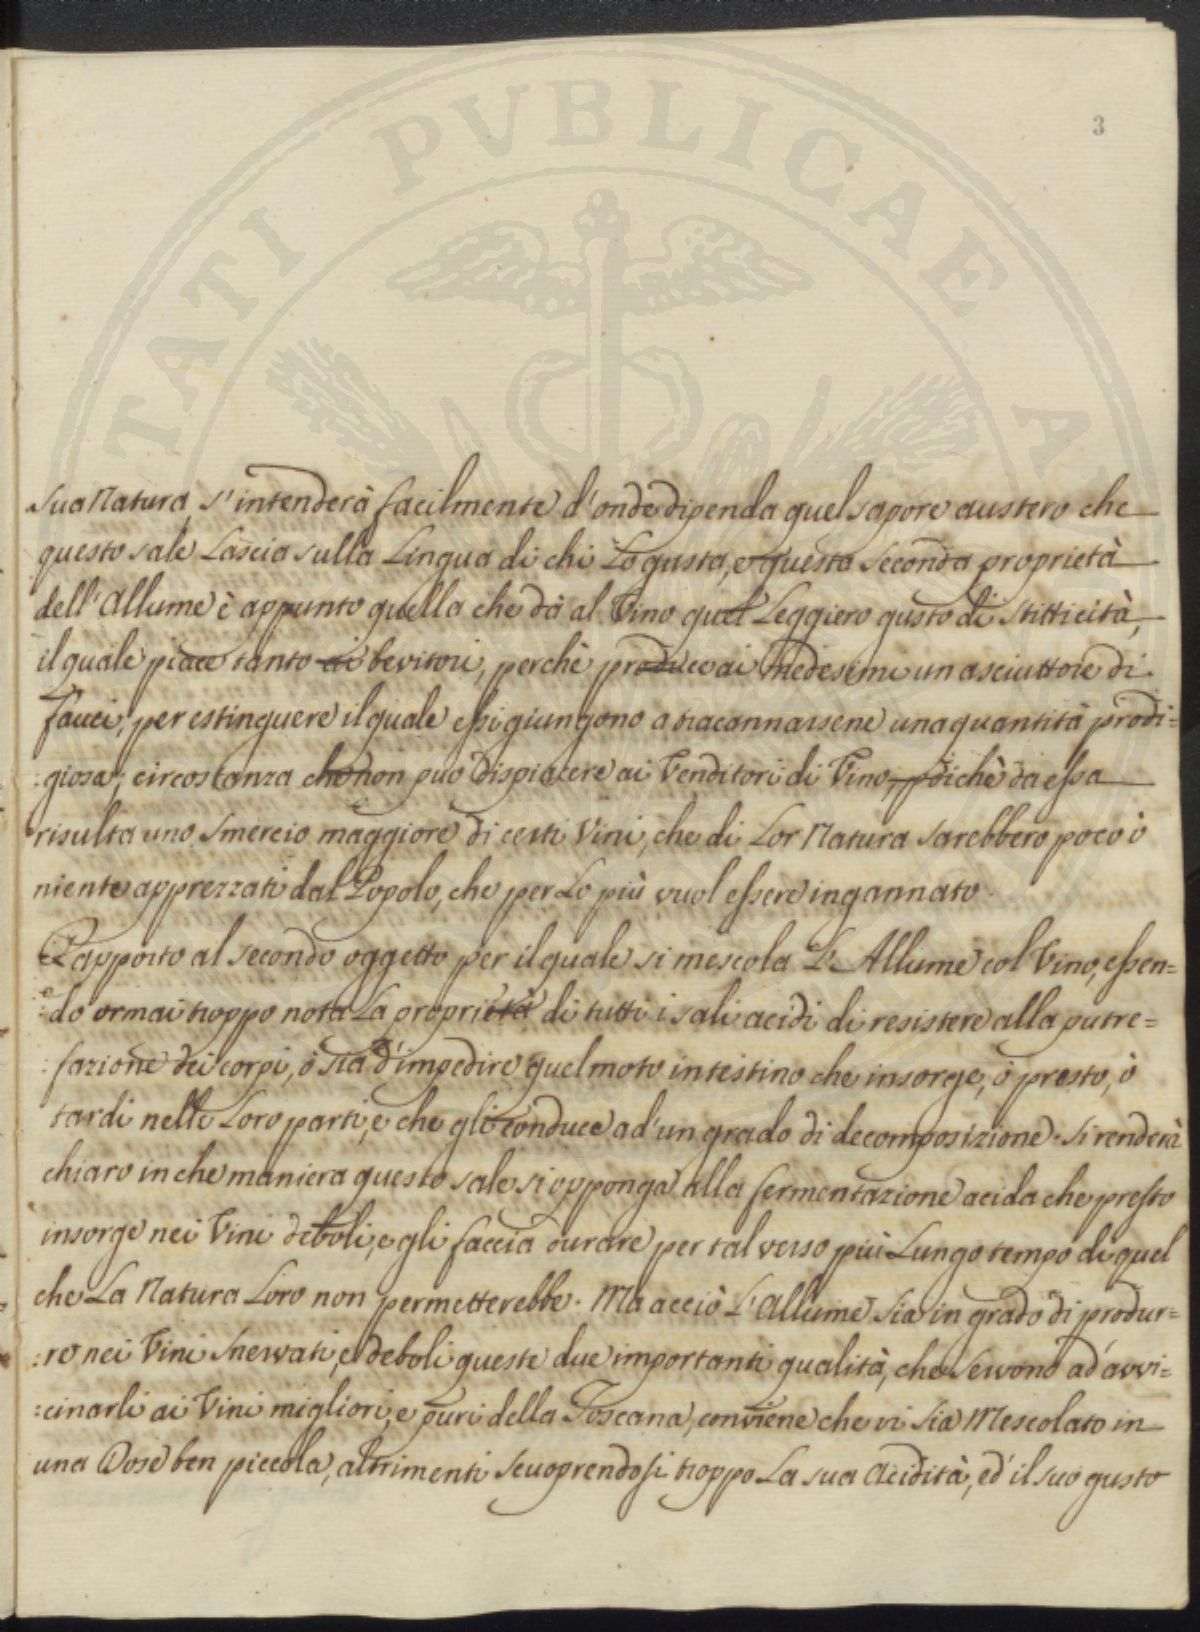 TATI PVBLICAE A
3
sua Natura s'intenderà facilmente d'onde dipenda quel sapore austero che
questo sale Lascia sulla Lingua di chi Lo gusta, e questa seconda proprietà
dell'Allume è appunto quella che dà al Vino quel Leggiero gusto di stitticità,
il quale piace tanto ai bevitori, perchè produce ai Medesimi un asciuttore di
fauci, per estinguere il quale essi giungono a tracannarsene una quantità prodi=
:giosa; circostanza che non può dispiacere ai Venditori di Vino, poichè da essa
risulta uno smercio maggiore di certi Vini, che di Lor Natura sarebbero poco ò
niente apprezzati dal Popolo, che per Lo più vuol essere ingannato.
Rapporto al secondo oggetto per il quale si mescola L'Allume col Vino, essen=
:do ormai troppo nota La proprietà di tutti i sali acidi di resistere alla putre=
:fazione dei corpi, ò sia d'impedire quel moto intestino che insorge, ò presto, ò
tardi nelle Loro parti, e che gli conduce ad'un grado di decomposizione. si renderà
chiaro in che maniera questo sale si opponga alla fermentazione acida che presto
insorge nei Vini deboli, e gli faccia durare per tal verso più Lungo tempo di quel
che La Natura Loro non permetterebbe. Ma acciò L'Allume sia in grado di produr=
:re nei Vini snervati, e deboli queste due importanti qualità, che servono ad'avvi=
:cinarli ai Vini migliori, e puri della Toscana, conviene che vi sia Mescolato in
una Dose ben piccola, altrimenti scuoprendosi troppo La sua Acidità, ed'il suo gusto